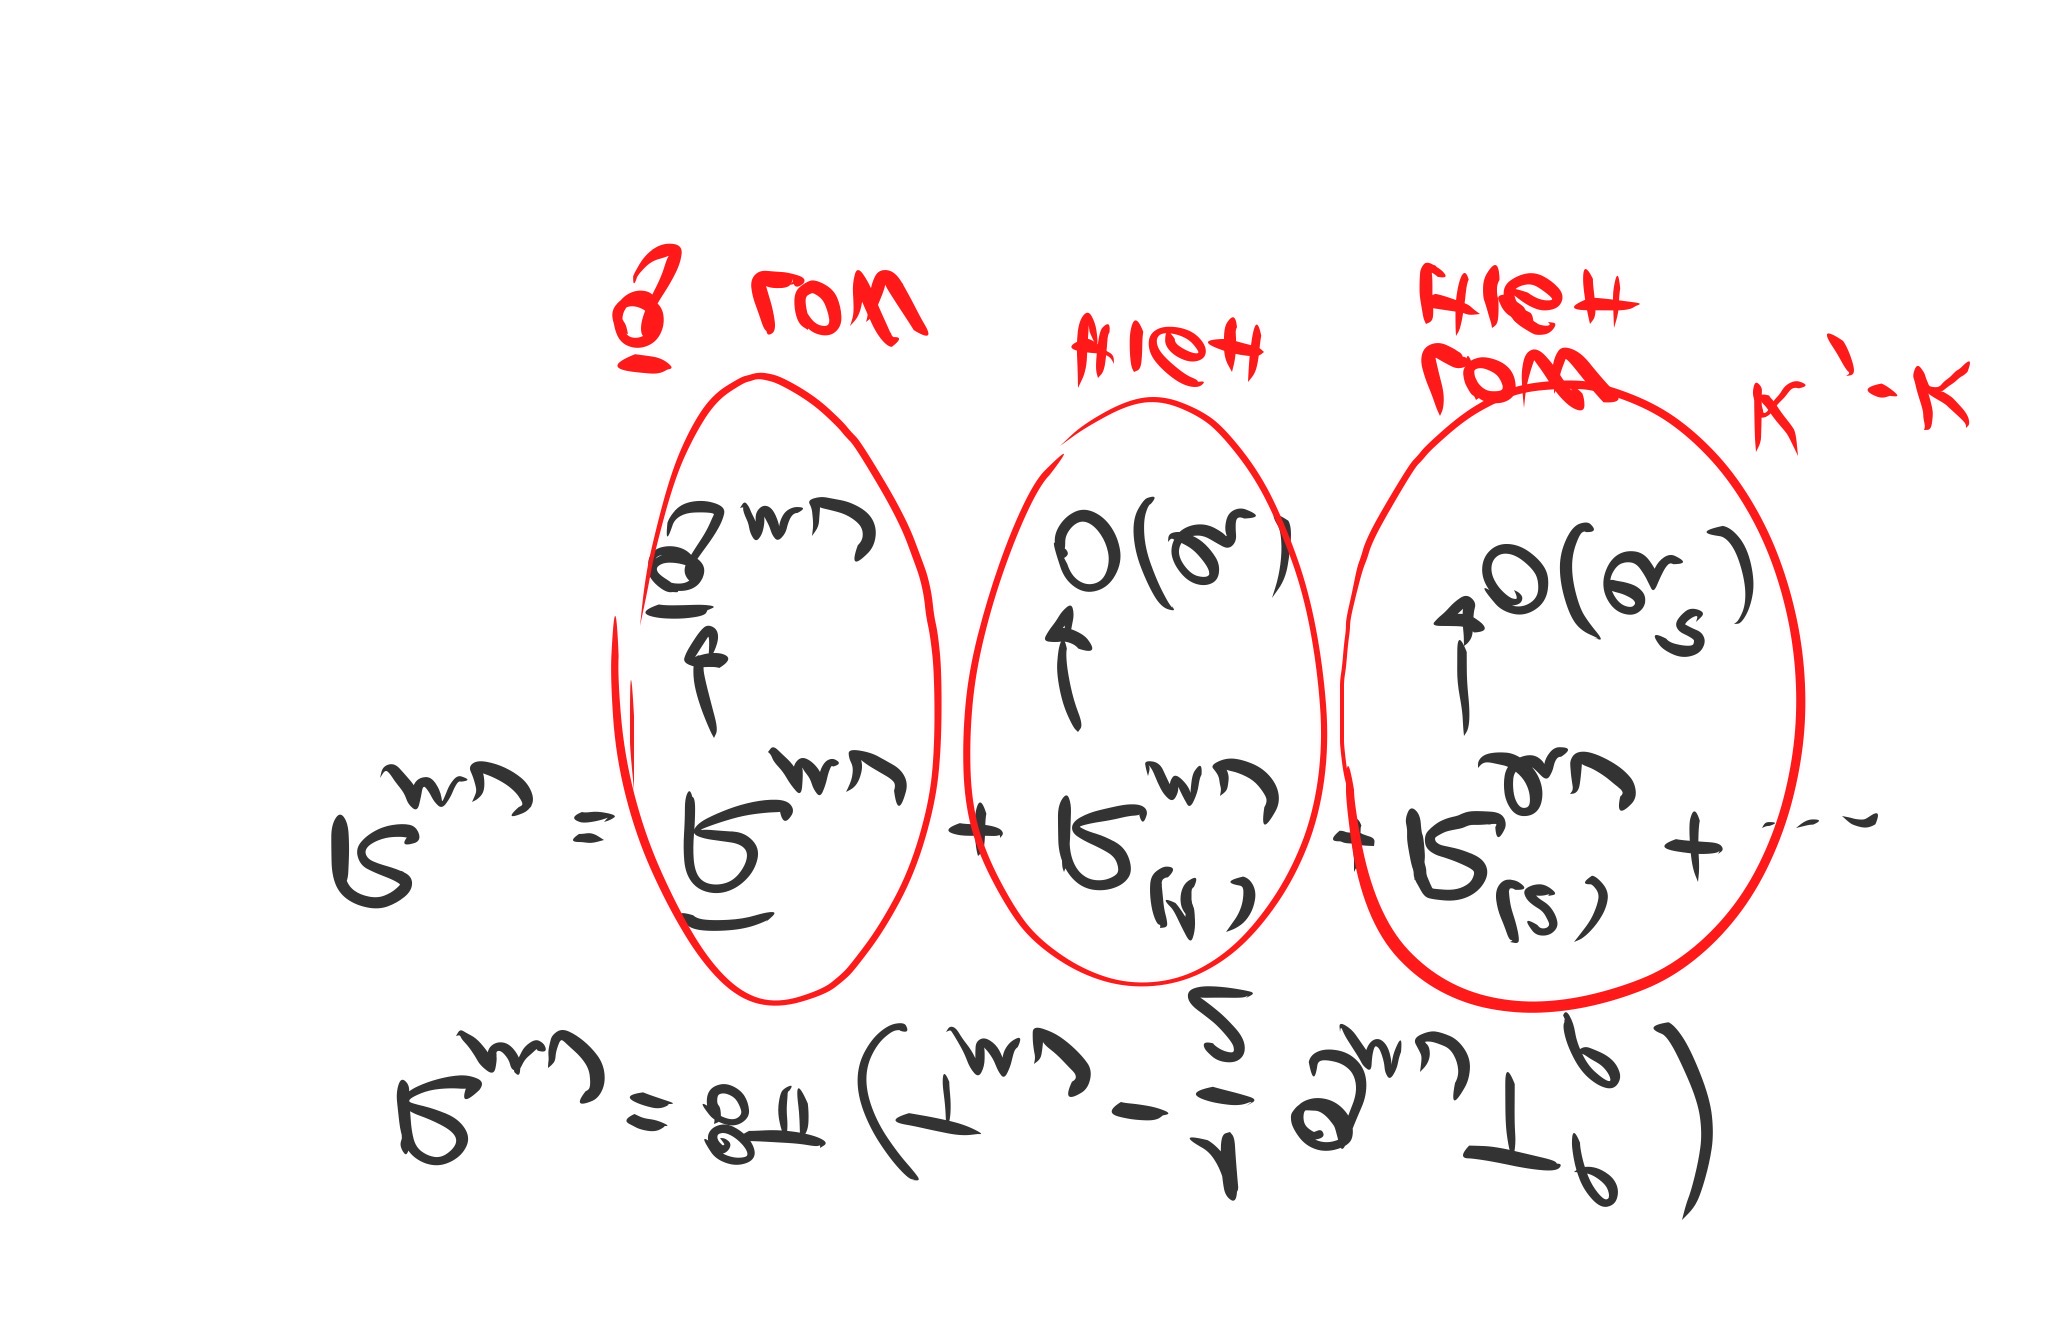 R_{μν} = 8π (T_{μν} - 1/2 g_{μν} T^ρ_ρ)
R_{μν} = R̄_{μν} + R^{(1)}_{μν} + R^{(2)}_{μν} + ---
↓ ↓ ↓
ḡ_{μν} O(h) O(h²)
K, -K
ḡ LOW HIGH LOW
HIGH